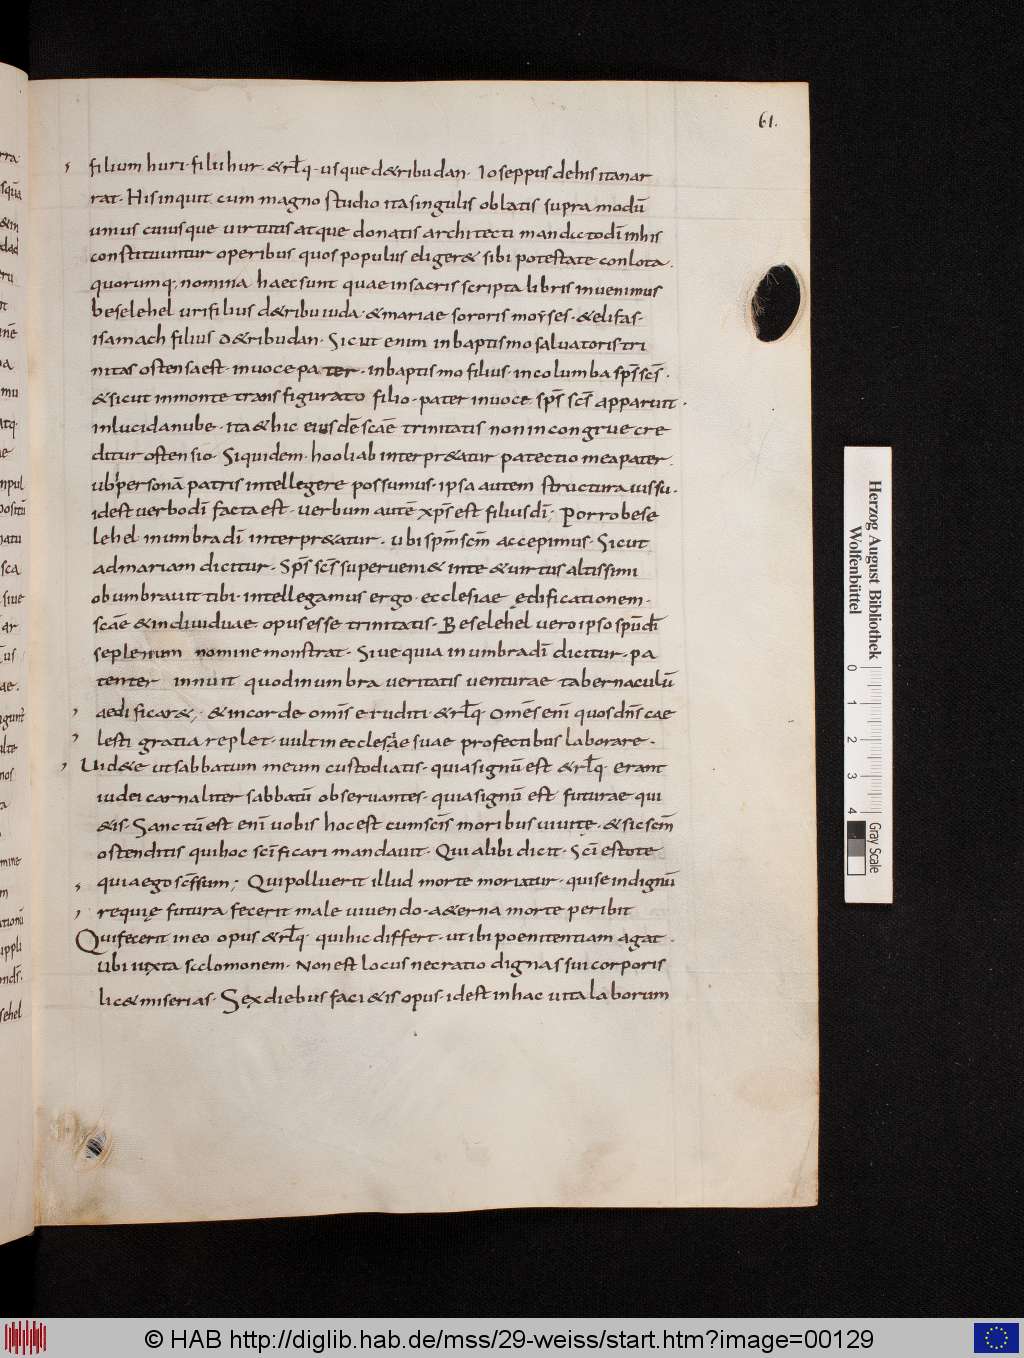 61.
filium huri · filii hur · &rłq · usque d&ribu dan · Ioseppus de his ita nar
rat · His inquit cum magno studio ita singulis oblatis supra modū
unius cuiusque uirtutis atque donatis architecti mandati dī in his
constituuntur operibus quos populus eliger& sibi potestate conlota.
quorumq; nomina haec sunt quae in sacris scripta libris inuenimus
beselehel uri filius d&ribu iuda · &mariae sororis moyses · &elifas ·
isamach filius d&ribu dan · Sicut enim in baptismo saluatoris tri
nitas ostensa est · in uoce pater · in baptismo filius · in columba sps̄ scs̄ ·
&sicut in monte transfigurato filio · pater in uoce sps̄ scs̄ apparuit ·
in lucida nube · ita &hic eiusdē scāe trinitatis non incongrue cre
ditur ostensio · Siquidem · hooliab interpr&atur patectio mea pater.
ubi personā patris intellegere possumus · ipsa autem structura iussu ·
id est uerbo dī facta est · uerbum autē xps̄ est filius dī · Porro bese
lehel in umbra dī interpr&atur · ubi spm̄ scm̄ accepimus · Sicut
ad mariam dicitur · Sps̄ scs̄ superueni& in te &uirtus altissimi
obumbrauit tibi · intellegamus ergo · ecclesiae ędificationem ·
scāe &indiuiduae opus esse trinitatis · Beselehel uero ipso spū dī
seplenum nomine monstrat · Siue quia in umbra dī dicitur · pa
tenter innuit quod in umbra ueritatis uenturae tabernaculū
aedificar&; · &in corde omīs eruditi · &rłq · Omēs enī quos dn̄s cae
lesti gratia replet · uult in ecclesiae suae profectibus laborare ·
Uid&e ut sabbatum meum custodiatis · quia signū est &rłq · erant
iudei carnaliter sabbatū obseruantes · quia signū est futurae qui
&is · Sanctū est enī uobis hoc est cum scīs moribus uiuite · &sic scm̄
ostenditis qui hoc scīficari mandauit · Qui alibi dicit · Scī estote
quia ego scs̄ sum; Qui polluerit illud morte moriatur · qui se indignū
requię futura fecerit male uiuendo · a&erna morte peribit
Qui fecerit in eo opus &rłq · qui hic differt · ut ibi poenitentiam agat ·
Ubi iuxta scclomonem · Non est locus nec ratio dignas sui corporis
lic& miserias · Sex diebus faci&is opus · id est in hac uita laborum
Herzog August Bibliothek
Wolfenbüttel
0 1 2 3 4
Gray Scale
© HAB http://diglib.hab.de/mss/29-weiss/start.htm?image=00129